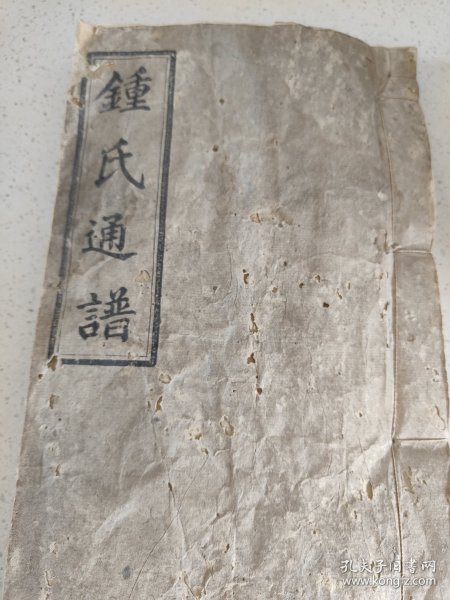 鍾氏通譜
孔夫子旧书网
www.kongfz.com